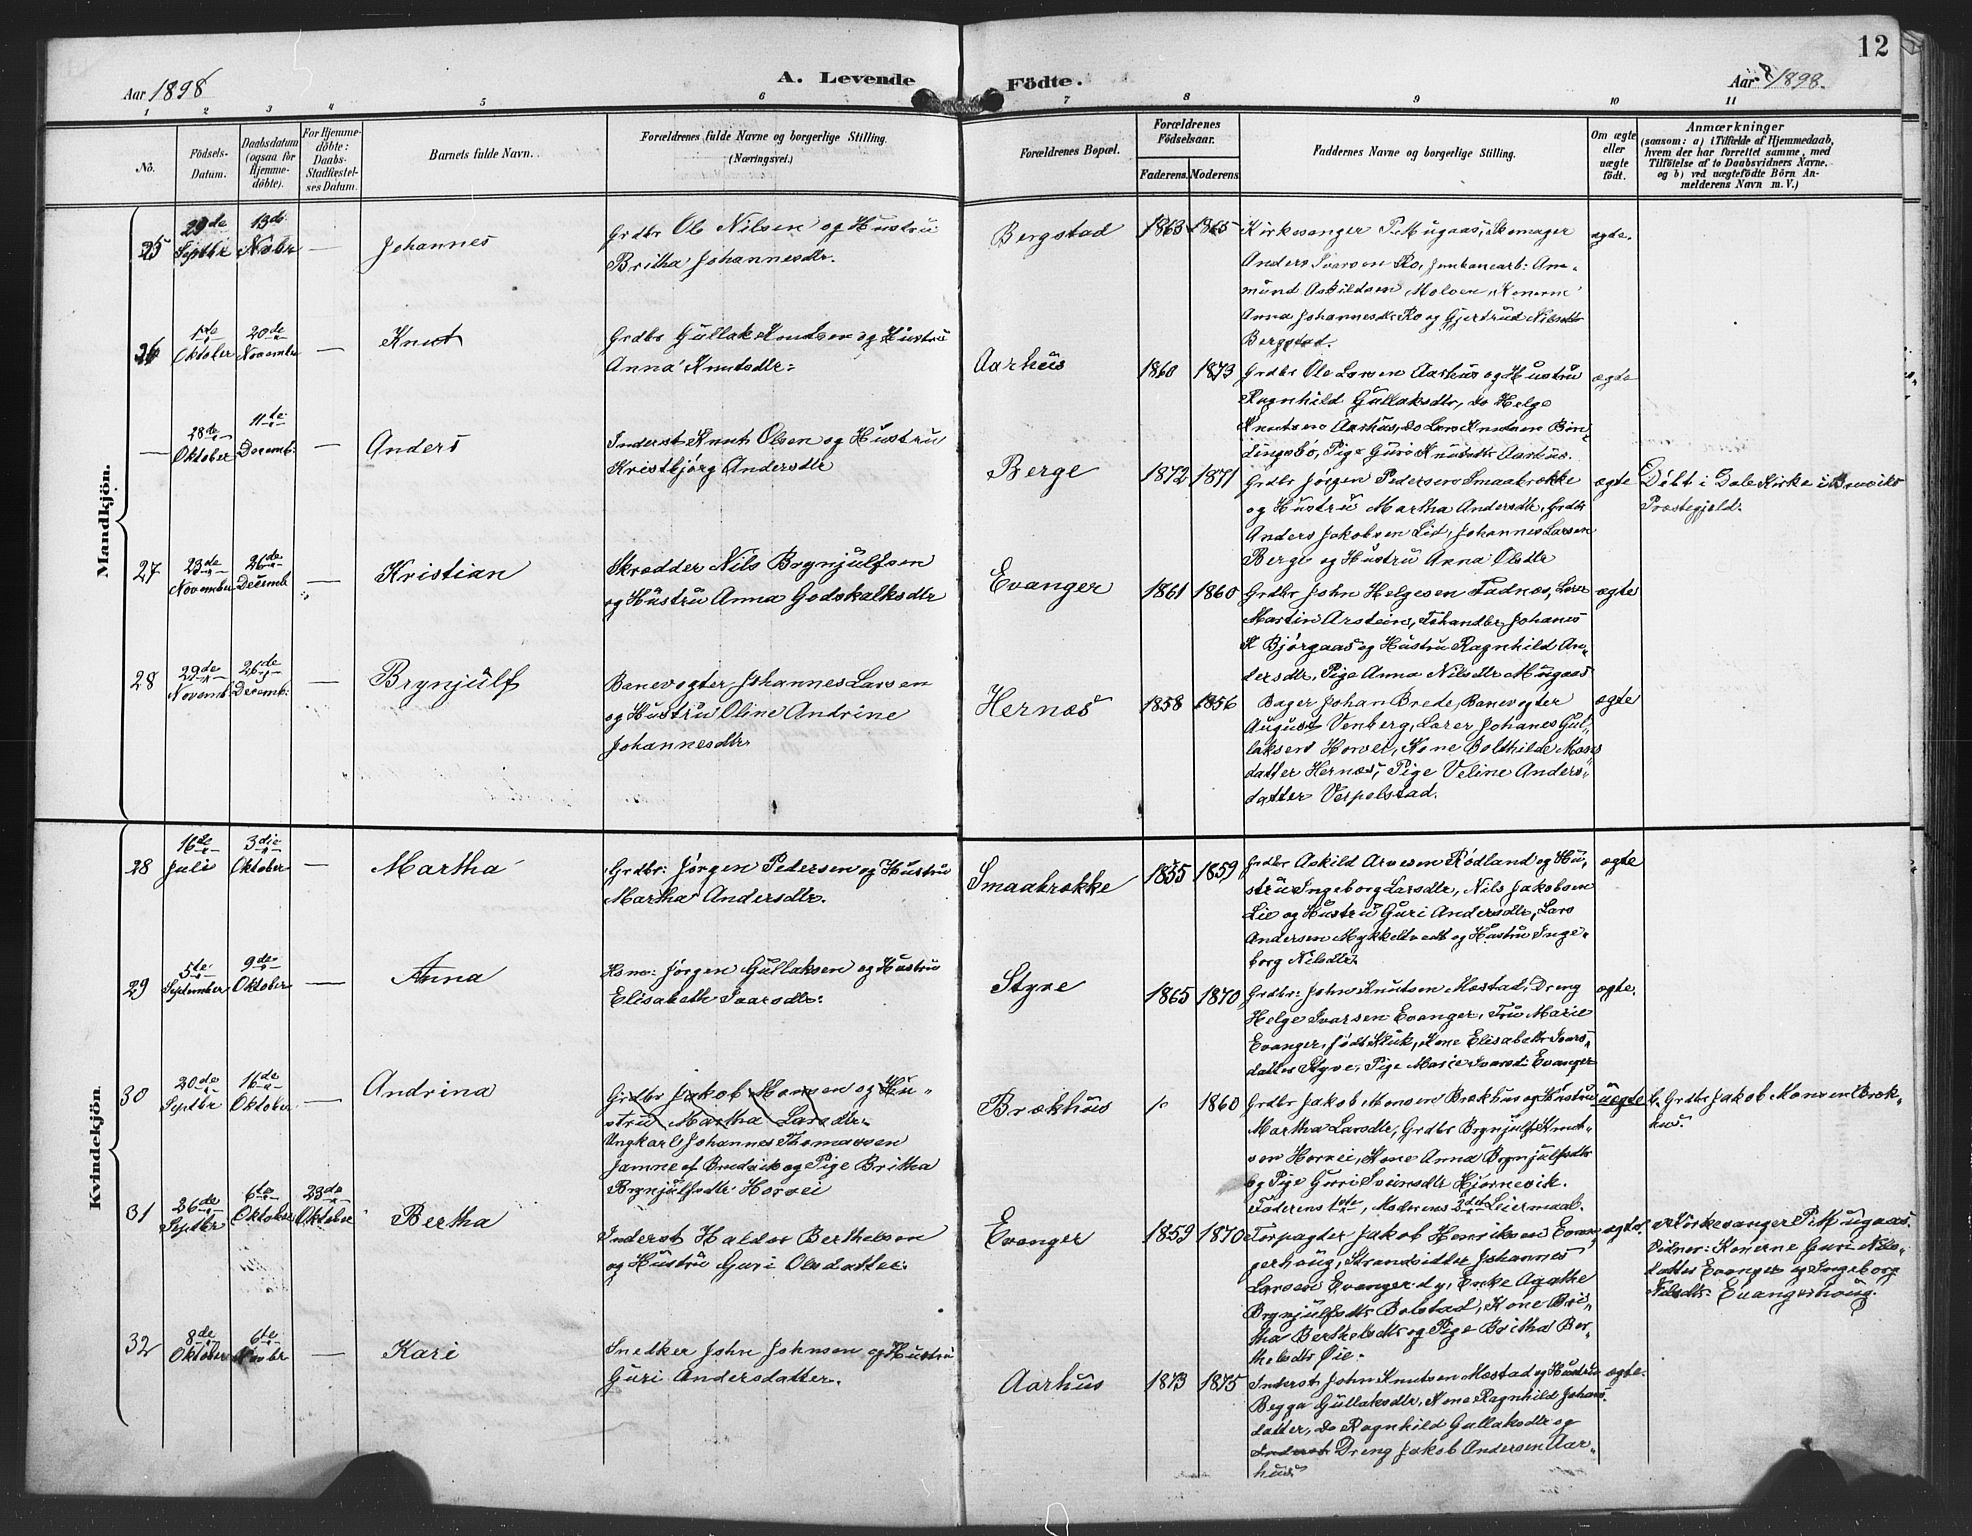 12
Aar 1898
A. Levende Födte.
Aar 1898.
1 2 3 4 5 6 7 8 9 10 11
No.
Födsels-
Datum.
Daabsdatum
(ogsaa for
Hjemme-
döbte).
For Hjemme-
döbte:
Daabs-
Stadfæstel-
ses Datum.
Barnets fulde Navn.
Forældrenes fulde Navne og borgerlige Stilling.
(Næringsvei.)
Forældrenes Bopæl.
Forældrenes
Födselsaar.
Faderens. Moderens.
Faddernes Navne og borgerlige Stilling.
Om ægte
eller
uægte
födt.
Anmærkninger
(saasom: a) i Tilfælde af Hjemmedaab,
hvem der har forrettet samme, med
Tilföielse af to Daabsvidners Navne,
og b) ved uægtefödte Börn An-
melderens Navn m. V.)
Mandkjön.
25
29de
Septbr
13de
Novbr
—
Johannes
Grdbr Ole Nilsen og Hustru
Britha Johannesdtr.
Bergstad
1863 1865
Kirkesanger P. Mugaas, Skomager
Anders Ivarsen Ro, Jernbanearb: Am-
mund Askildsen Molven, Konerne
Anna Johannesdtr Ro og Gjertrud Nilsdtr
Bergstad.
ægte.
26
1ste
Oktober
20de
Novembr
—
Knut
Grdbr Gullak Knutsen og Hustru
Anna Knutsdtr:
Aarhus
1860 1873
Grdbr Ole Larsen Aarhus og Hustru
Ragnhild Gullaksdtr, Do Helge
Knutsen Aarhus, Do Lars Knutsen Bin-
dingsbø, Pige Guro Knutsdtr Aarhus.
ægte
—
28de
Oktober
11te
Decemb:
—
Anders
Inderst Knut Olsen og Hustru
Kristbjørg Andersdtr
Berge
1872 1871
Grdbr Jørgen Pedersen Smaabrække
og Hustru Martha Andersdtr, Grdbr
Anders Jakobsen Lid, Johannes Larsen
Berge og Hustru Anna Olsdtr
ægte
Døbt i Dale Kirke i Bruviks
Præstegjeld.
27
23de
November
26de
Decemb.
—
Kristian
Skrædder Nils Brynjulfsen
og Hustru Anna Godskalksdtr
Evanger
1861 1860
Grdbr John Helgesen Fadnæs, Lærer
Martin Arstein, Fehandler Johanes
K Bjørgaas og Hustru Ragnhild An-
dersdtr, Pige Anna Nilsdtr Mugaas
ægte
28
29de
Novemb:
26de
Decemb:
—
Brynjulf
Banevogter Johannes Larsen
og Hustru Oline Andrine
Johannesdtr
Hernæs
1858 1856
Bager Johan Brede, Banevogter
August Venberg, Lærer Johanes Gul-
laksen Horvei, Kone Bolthilde Mons
datter Hernæs, Pige Veline Anders-
datter Vespelstad.
ægte
Kvindekjön
28
16de
Juli
3die
Oktober
—
Martha
Grdbr: Jørgen Pedersen og Hustru
Martha Andersdtr.
Smaabrække
1855 1859
Grdbr Askild Arvesen Rødland og Hu-
stru Ingeborg Larsdtr, Nils Jakobsen
Lie og Hustru Guri Andersdtr, Lars
Andersen Mykkeltvedt og Hustru Inge-
borg Nilsdtr
ægte
29
5te
September
9de
Oktober
—
Anna
Hsm: Jørgen Gullaksen og Hustru
Elisabeth Ivarsdtr:
Styve
1865 1870
Grdbr: John Knutsen Mæstad, Dreng
Helge Ivarsen Evanger, Fru Marie
Evanger, født Kluk, Kone Elisabeth Ivars-
datter Styve, Pige Marie Ivarsd: Evanger
ægte.
30
20de
Septbr
16de
Oktober
—
Andrina
Grdbr Jakob Monsen og Hu-
stru Martha Larsdtr.
Ungkarl Johannes Thomassen
Jamne af Bruvik og Pige Britha
Brynjulfsdtr Horvei
Brækhus
1860
Grdbr Jakob Monsen Brækhus og Hustru
Martha Larsdtr, Grdbr Brynjulf Knut-
sen Horvei, Kone Anna Brynjulfsdtr
og Pige Guro Sveinsdtr Hjørnevik.
Faderens 1ste, Moderens 3die Leiermaal.
uægte
b. Grdbr Jakob Monsen Bræk-
hus.
31
26de
Septbr
6te
Oktober
23de
Oktober
Bertha
Inderst Haldor Berthelsen
og Hustru Guri Olsdatter.
Evanger
1859 1870
Forpagter Jakob Henriksen Evan-
gerhaug, Strandsidder Johannes
Larsen Evanger, Enke Agathe
Brynjulfsdtr Bolstad, Kone Bri-
tha Berthelsdtr og Pige Britha Ber-
thelsdtr Øie.
ægte.
a Kirkesanger P. Mugaas.
Vidner: Konerne Guri Nils-
datter Evanger og Ingeborg
Nilsdtr Evangerhaug.
32
8de
Oktober
6te
Novbr
—
Kari
Snedker John Johnsen og Hustru
Guri Andersdatter.
Aarhus
1873 1875
Inderst John Knutsen Mæstad og Hustru
Begga Gullaksdtr, Kone Ragnhild Johans
datter, Do Ragnhild Gullaksdtr og
Inderst Dreng Jakob Andersen Aar-
hus
ægte.